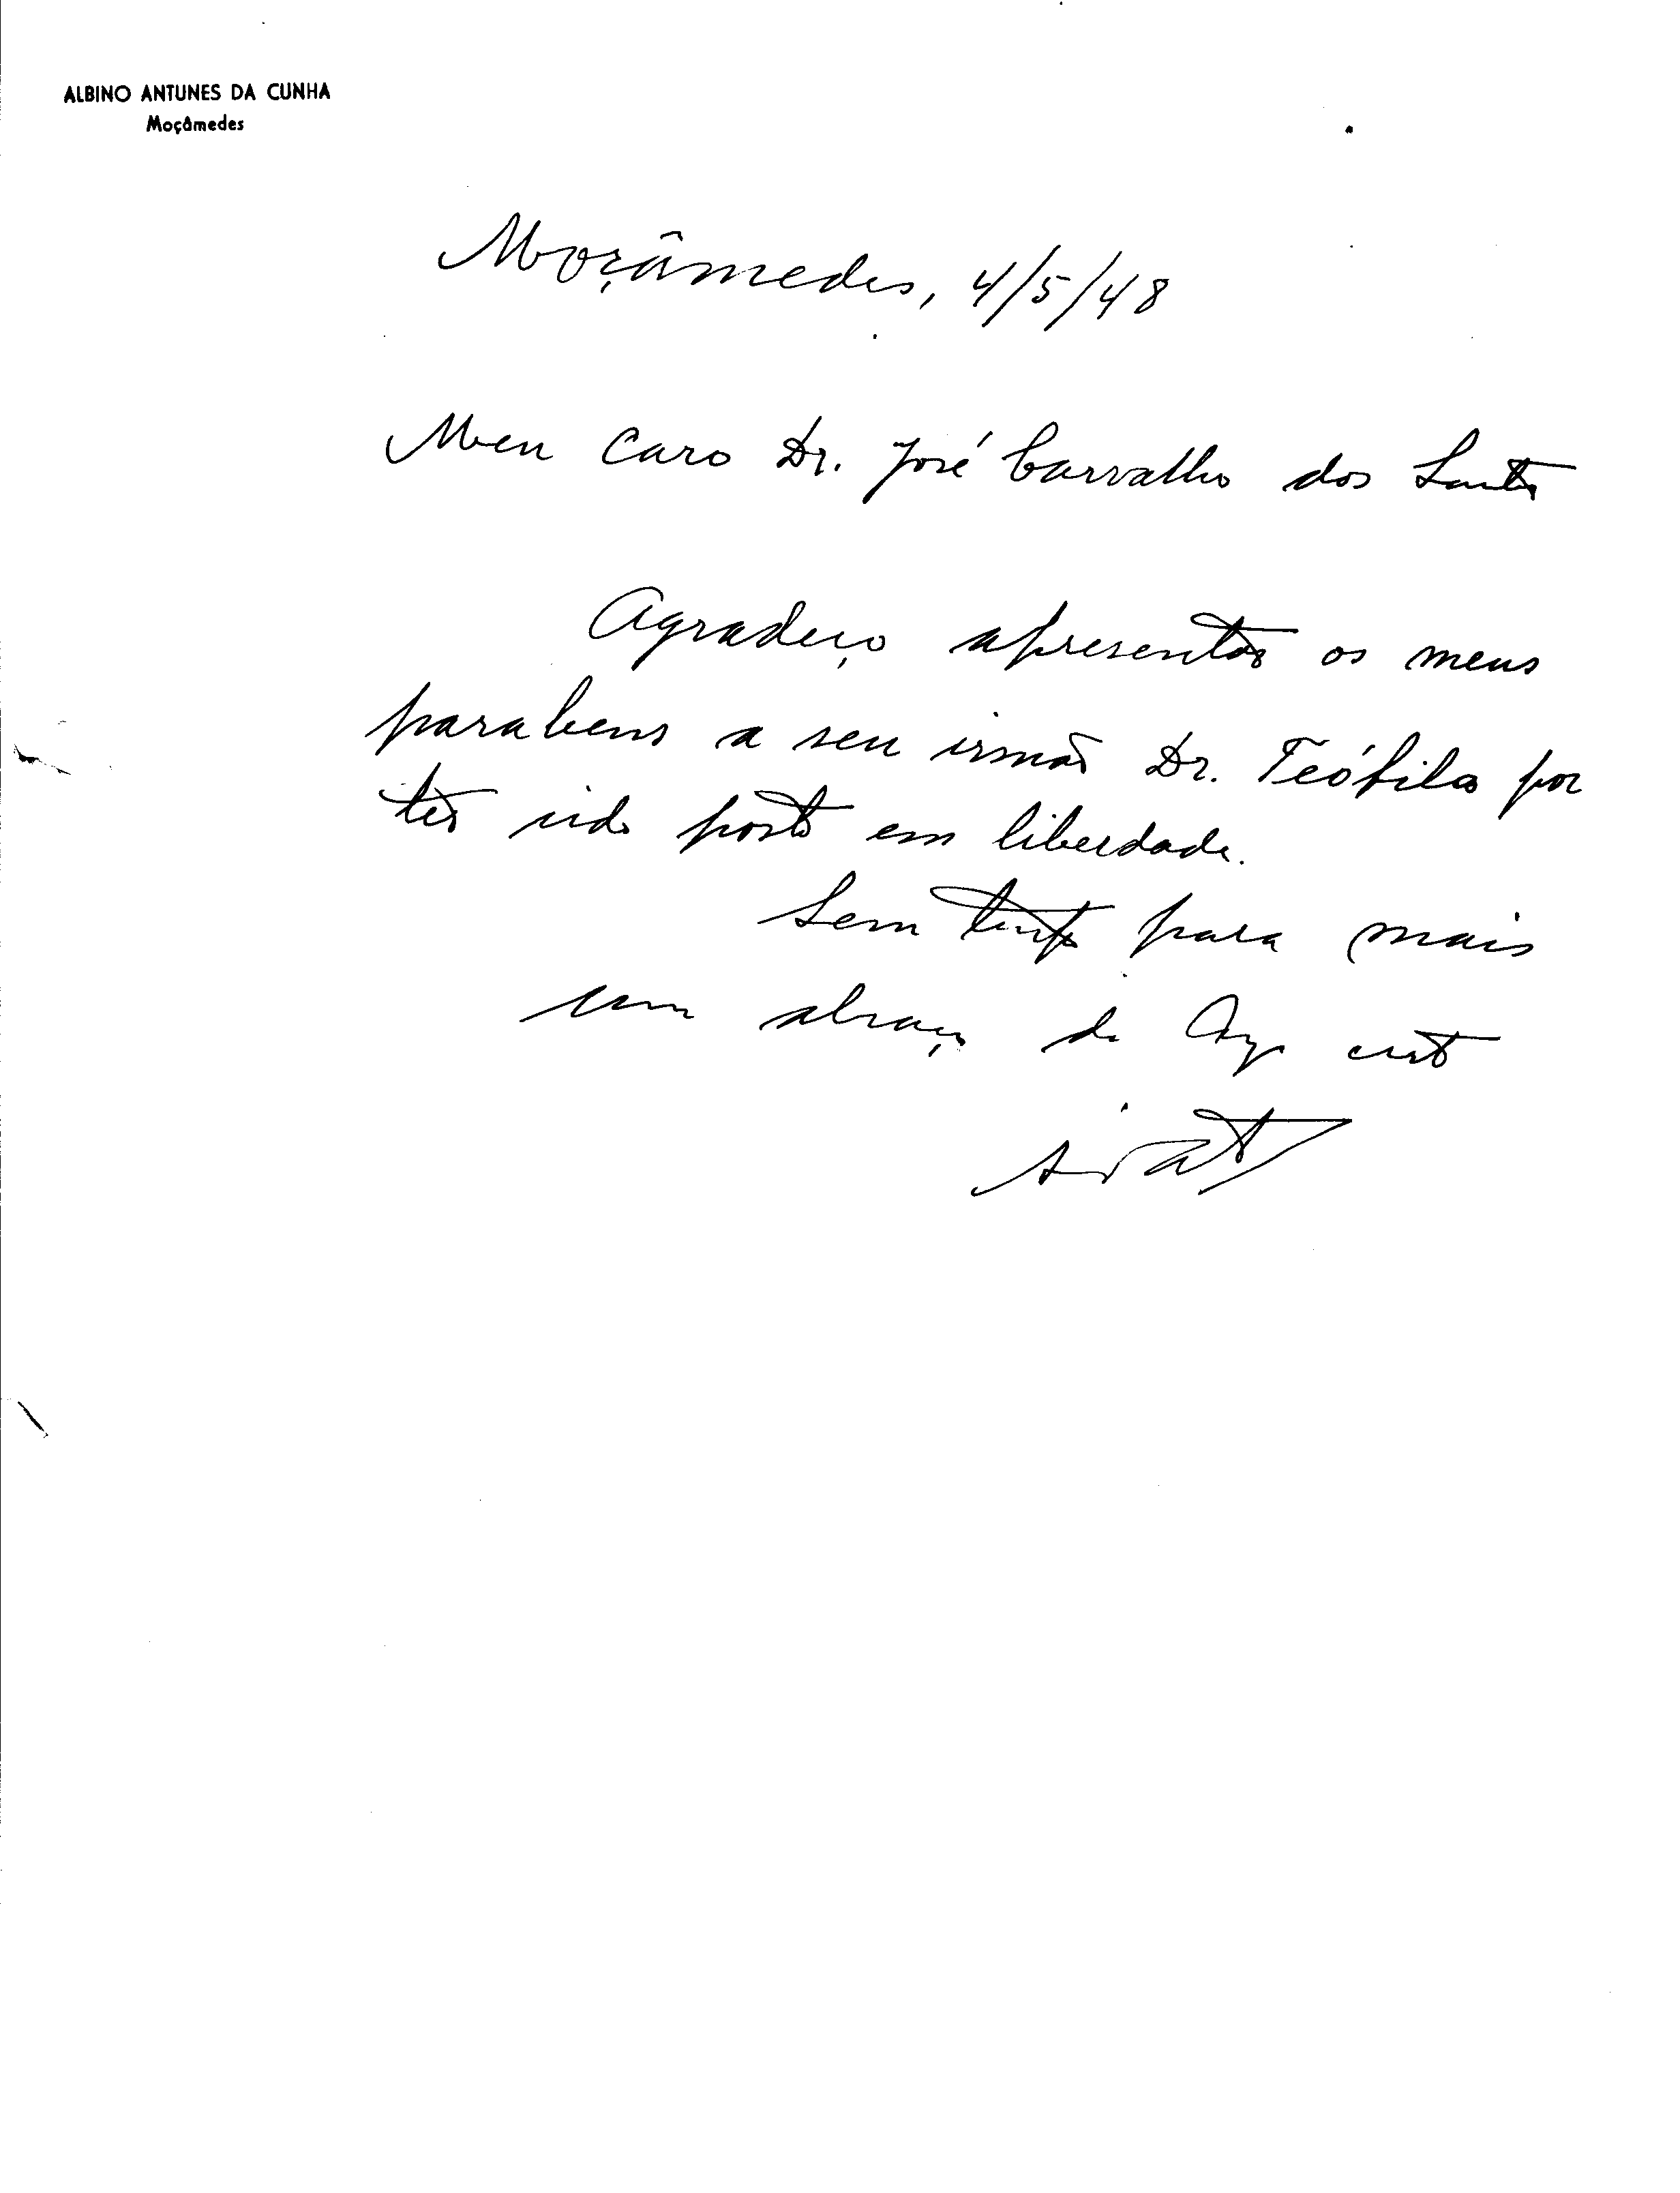 ALBINO ANTUNES DA CUNHA
Moçâmedes
Moçâmedes, 4/5/48
Meu caro Dr. José Carvalho dos Santos
Agradeço apresentar os meus
parabens a seu irmão Dr. Teófilo por
ter sido posto em liberdade.
Sem tempo para mais
um abraço do Amgo certo